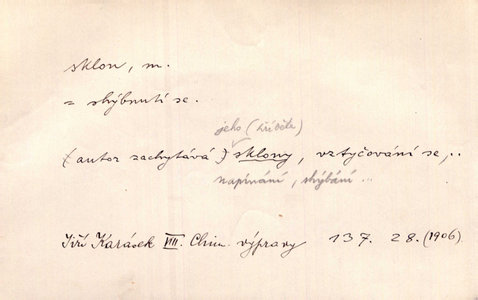 sklon, m.
= shýbnutí se.
jeho (
(autor zachytává) sklony, vztyčování se,..
napínání, shýbání ...
Jiří Karásek VIII. Chim. výpravy 137. 28. (1906)